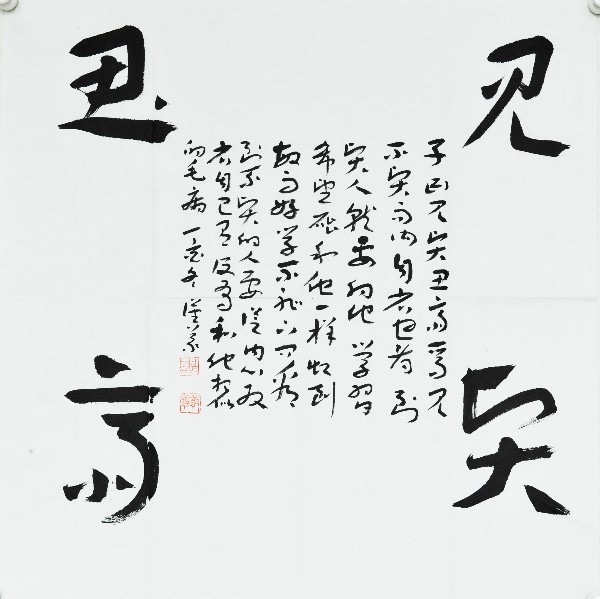 见贤
思齐
子曰见贤思齐焉见
不贤而内自省也看到
贤人就要向他学习
希望能和他一样做到
敏而好学不耻下问看
到不贤的人要从内心反
省自己有和他相似
的毛病 丁亥冬